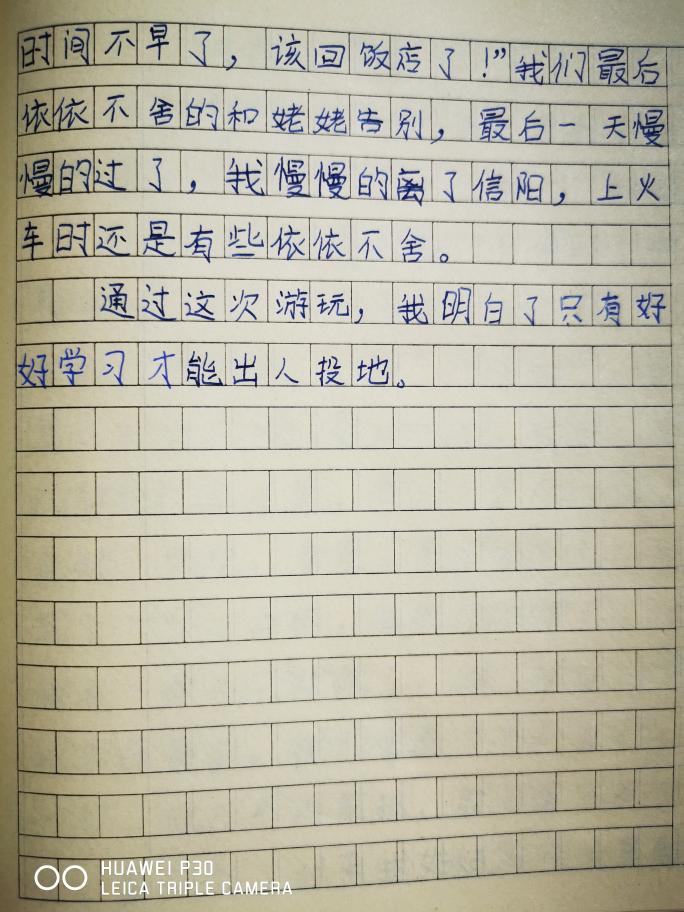 时间不早了，该回饭店了！”我们最后
依依不舍的和姥姥告别，最后一天慢
慢的过了，我慢慢的离了信阳，上火
车时还是有些依依不舍。
通过这次游玩，我明白了只有好
好学习才能出人投地。
HUAWEI P30
LEICA TRIPLE CAMERA